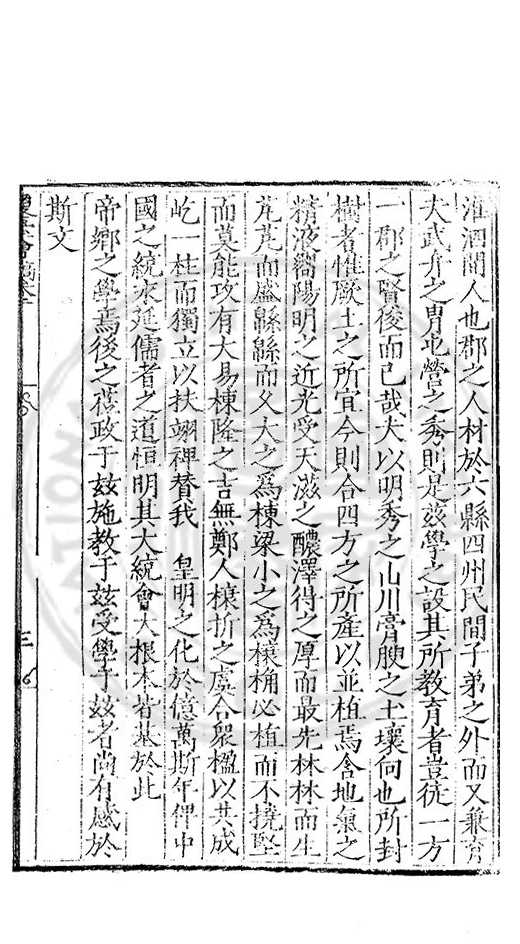 淮泗間人也郡之人材於六縣四州民間子弟之外而又兼育
大武弁之胄屯營之秀則是兹學之設其所教育者豈徒一方
一郡之賢俊而已哉夫以明秀之山川膏腴之土壤何也所封
樹者惟厥土之所宜今則合四方之所產以並植焉含地氣之
精液嚮陽明之近光受天滋之醲澤得之厚而最先林林而生
芃芃而盛緜緜而久大之爲棟梁小之爲榱桷必植而不撓堅
而莫能攻有大易棟隆之吉無鄭人榱折之虞合衆楹以共成
屹一柱而獨立以扶翊裨賛我 皇明之化於億萬斯年俾中
國之統永延儒者之道恒明其大統會大根本皆基於此
帝鄉之學焉後之蒞政于兹施教于兹受學于兹者尚有感於
斯文
三